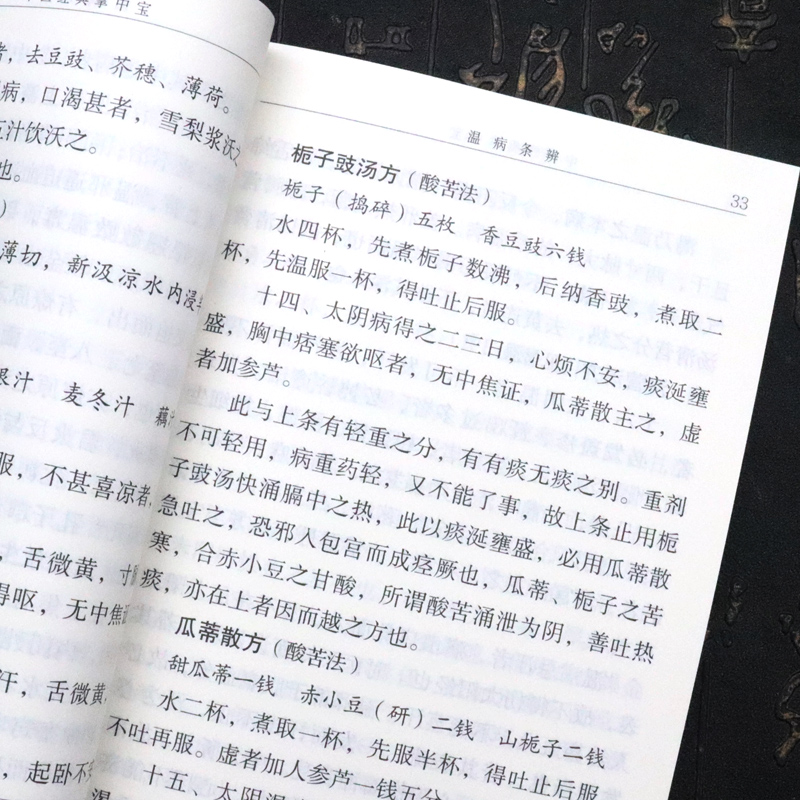 掌中宝
去豆豉、芥穗、薄荷。
病，口渴甚者，雪梨浆沃之
五汁饮沃之。
也。
薄切，新汲凉水内浸
根汁 麦冬汁 藕
服，不甚喜凉者
，舌微黄，寸
得呕，无中焦
汗，舌微黄
，起卧不
温病条辨
33
栀子豉汤方（酸苦法）
栀子（捣碎）五枚 香豆豉六钱
水四杯，先煮栀子数沸，后纳香豉，煮取二
杯，先温服一杯，得吐止后服。
十四、太阴病得之二三日，心烦不安，痰涎壅
盛，胸中痞塞欲呕者，无中焦证，瓜蒂散主之，虚
者加参芦。
此与上条有轻重之分，有有痰无痰之别。重剂
不可轻用，病重药轻，又不能了事，故上条止用栀
子豉汤快涌膈中之热，此以痰涎壅盛，必用瓜蒂散
急吐之，恐邪入包宫而成痉厥也，瓜蒂、栀子之苦
寒，合赤小豆之甘酸，所谓酸苦涌泄为阴，善吐热
痰，亦在上者因而越之方也。
瓜蒂散方（酸苦法）
甜瓜蒂一钱 赤小豆（研）二钱 山栀子二钱
水二杯，煮取一杯，先服半杯，得吐止后服，
不吐再服。虚者加人参芦一钱五分
十五、太阴温